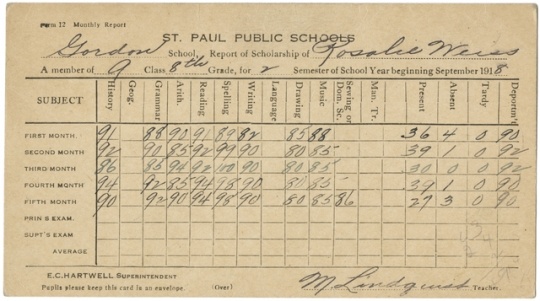 Form 12 Monthly Report
ST. PAUL PUBLIC SCHOOLS
Gordon School, Report of Scholarship of Rosalie Weiss
A member of 9 Class 8th Grade, for 2 Semester of School Year beginning September 1918
SUBJECT History Geog. Grammar Arith. Reading Spelling Writing Language Drawing Music Sewing or Dom. Sc. Man. Tr. Present Absent Tardy Deportm't
FIRST MONTH 91 88 90 91 89 82 85 88 36 4 0 90
SECOND MONTH 92 90 85 92 99 90 80 85 39 1 0 92
THIRD MONTH 86 85 94 92 100 90 80 85 30 0 0 92
FOURTH MONTH 94 92 85 94 98 90 80 85 39 1 0 90
FIFTH MONTH 90 92 90 94 98 90 80 85 86 27 3 0 90
PRIN'S EXAM.
SUPT'S EXAM
AVERAGE
E.C. HARTWELL SUPERINTENDENT
Pupils please keep this card in an envelope. (Over) M. Lindquist Teacher.